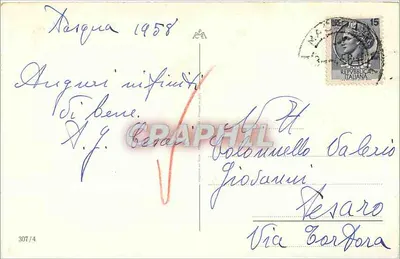 Pasqua 1958
Auguri infiniti
di bene.
A. G. Cesari
N H
Colonnello Valerio
Giovanni
Pesaro
Via Tortora
15
REPVBBLICA
ITALIANA
CPAPHIL
307/4